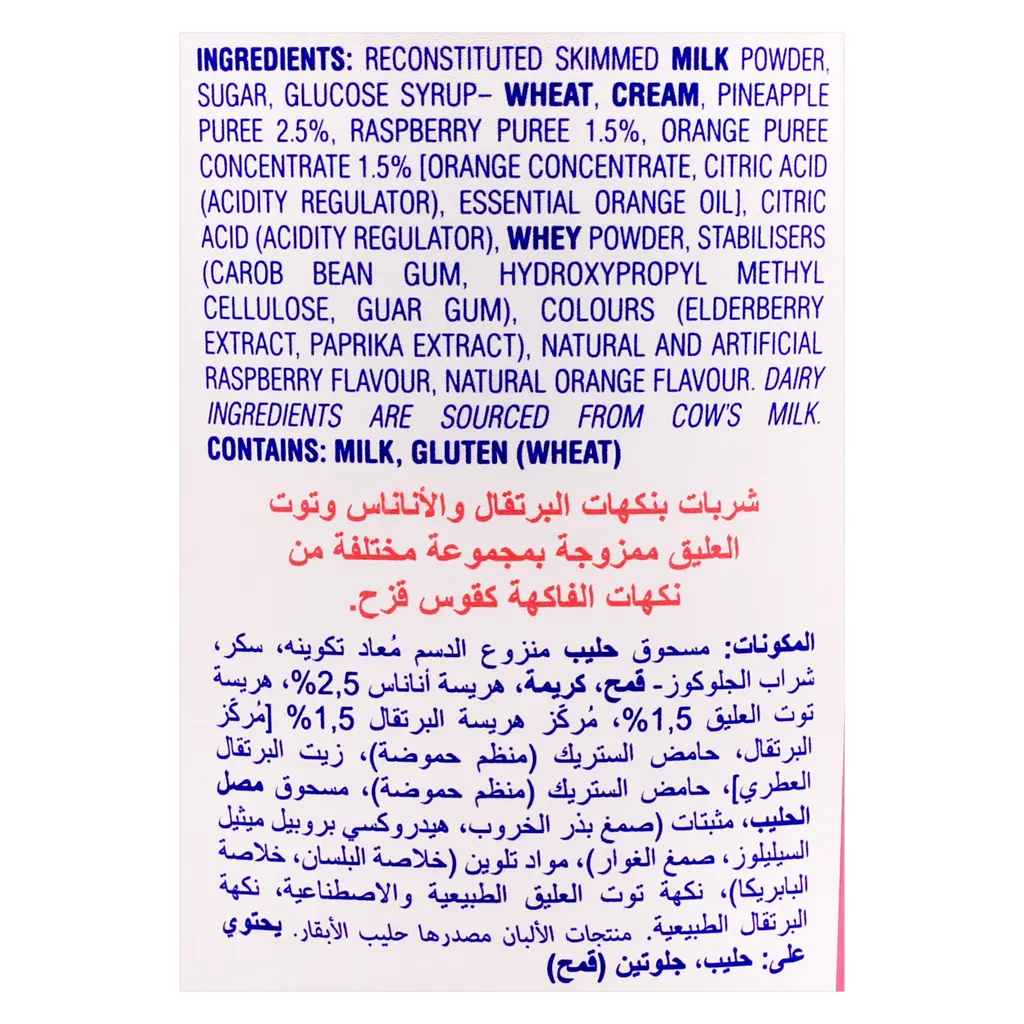 INGREDIENTS: RECONSTITUTED SKIMMED MILK POWDER,
SUGAR, GLUCOSE SYRUP– WHEAT, CREAM, PINEAPPLE
PUREE 2.5%, RASPBERRY PUREE 1.5%, ORANGE PUREE
CONCENTRATE 1.5% [ORANGE CONCENTRATE, CITRIC ACID
(ACIDITY REGULATOR), ESSENTIAL ORANGE OIL], CITRIC
ACID (ACIDITY REGULATOR), WHEY POWDER, STABILISERS
(CAROB BEAN GUM, HYDROXYPROPYL METHYL
CELLULOSE, GUAR GUM), COLOURS (ELDERBERRY
EXTRACT, PAPRIKA EXTRACT), NATURAL AND ARTIFICIAL
RASPBERRY FLAVOUR, NATURAL ORANGE FLAVOUR. DAIRY
INGREDIENTS ARE SOURCED FROM COW'S MILK.
CONTAINS: MILK, GLUTEN (WHEAT)
شربات بنكهات البرتقال والأناناس وتوت
العليق ممزوجة بمجموعة مختلفة من
نكهات الفاكهة كقوس قزح.
المكونات: مسحوق حليب منزوع الدسم مُعاد تكوينه، سكر،
شراب الجلوكوز- قمح، كريمة، هريسة أناناس 2,5%، هريسة
توت العليق 1,5%، مُركَز هريسة البرتقال 1,5% [مُركَز
البرتقال، حامض الستريك (منظم حموضة)، زيت البرتقال
العطري]، حامض الستريك (منظم حموضة)، مسحوق مصل
الحليب، مثبتات (صمغ بذر الخروب، هيدروكسي بروبيل ميثيل
السيليلوز، صمغ الغوار)، مواد تلوين (خلاصة البلسان، خلاصة
البابريكا)، نكهة توت العليق الطبيعية والاصطناعية، نكهة
البرتقال الطبيعية. منتجات الألبان مصدرها حليب الأبقار. يحتوي
على: حليب، جلوتين (قمح)